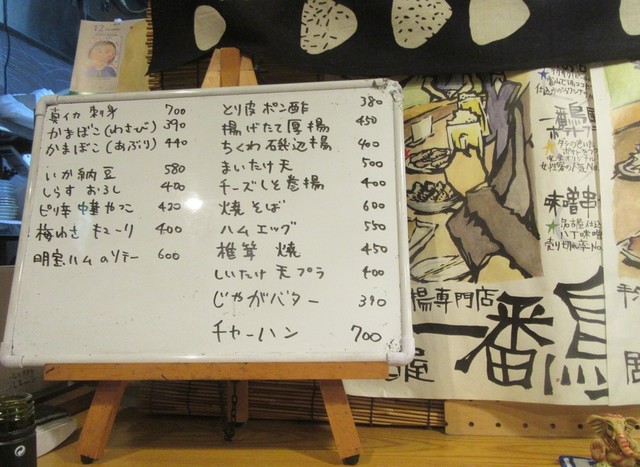 真イカ 刺身 700
かまぼこ(わさび) 390
かまぼこ(あぶり) 440
いか納豆 580
しらす おろし 400
ピリ辛 中華やっこ 420
梅かさ キューリ 400
明宝ハムのソテー 600
とり皮ポン酢 380
揚げたて厚揚 450
ちくわ石袋辺揚 400
まいたけ天 500
チーズしそ巻揚 400
焼そば 600
ハムエッグ 550
椎茸 焼 450
しいたけ天プラ 400
じゃがバター 390
チャーハン 700
味噌串
八丁味噌
揚専門店
一番鳥
屋